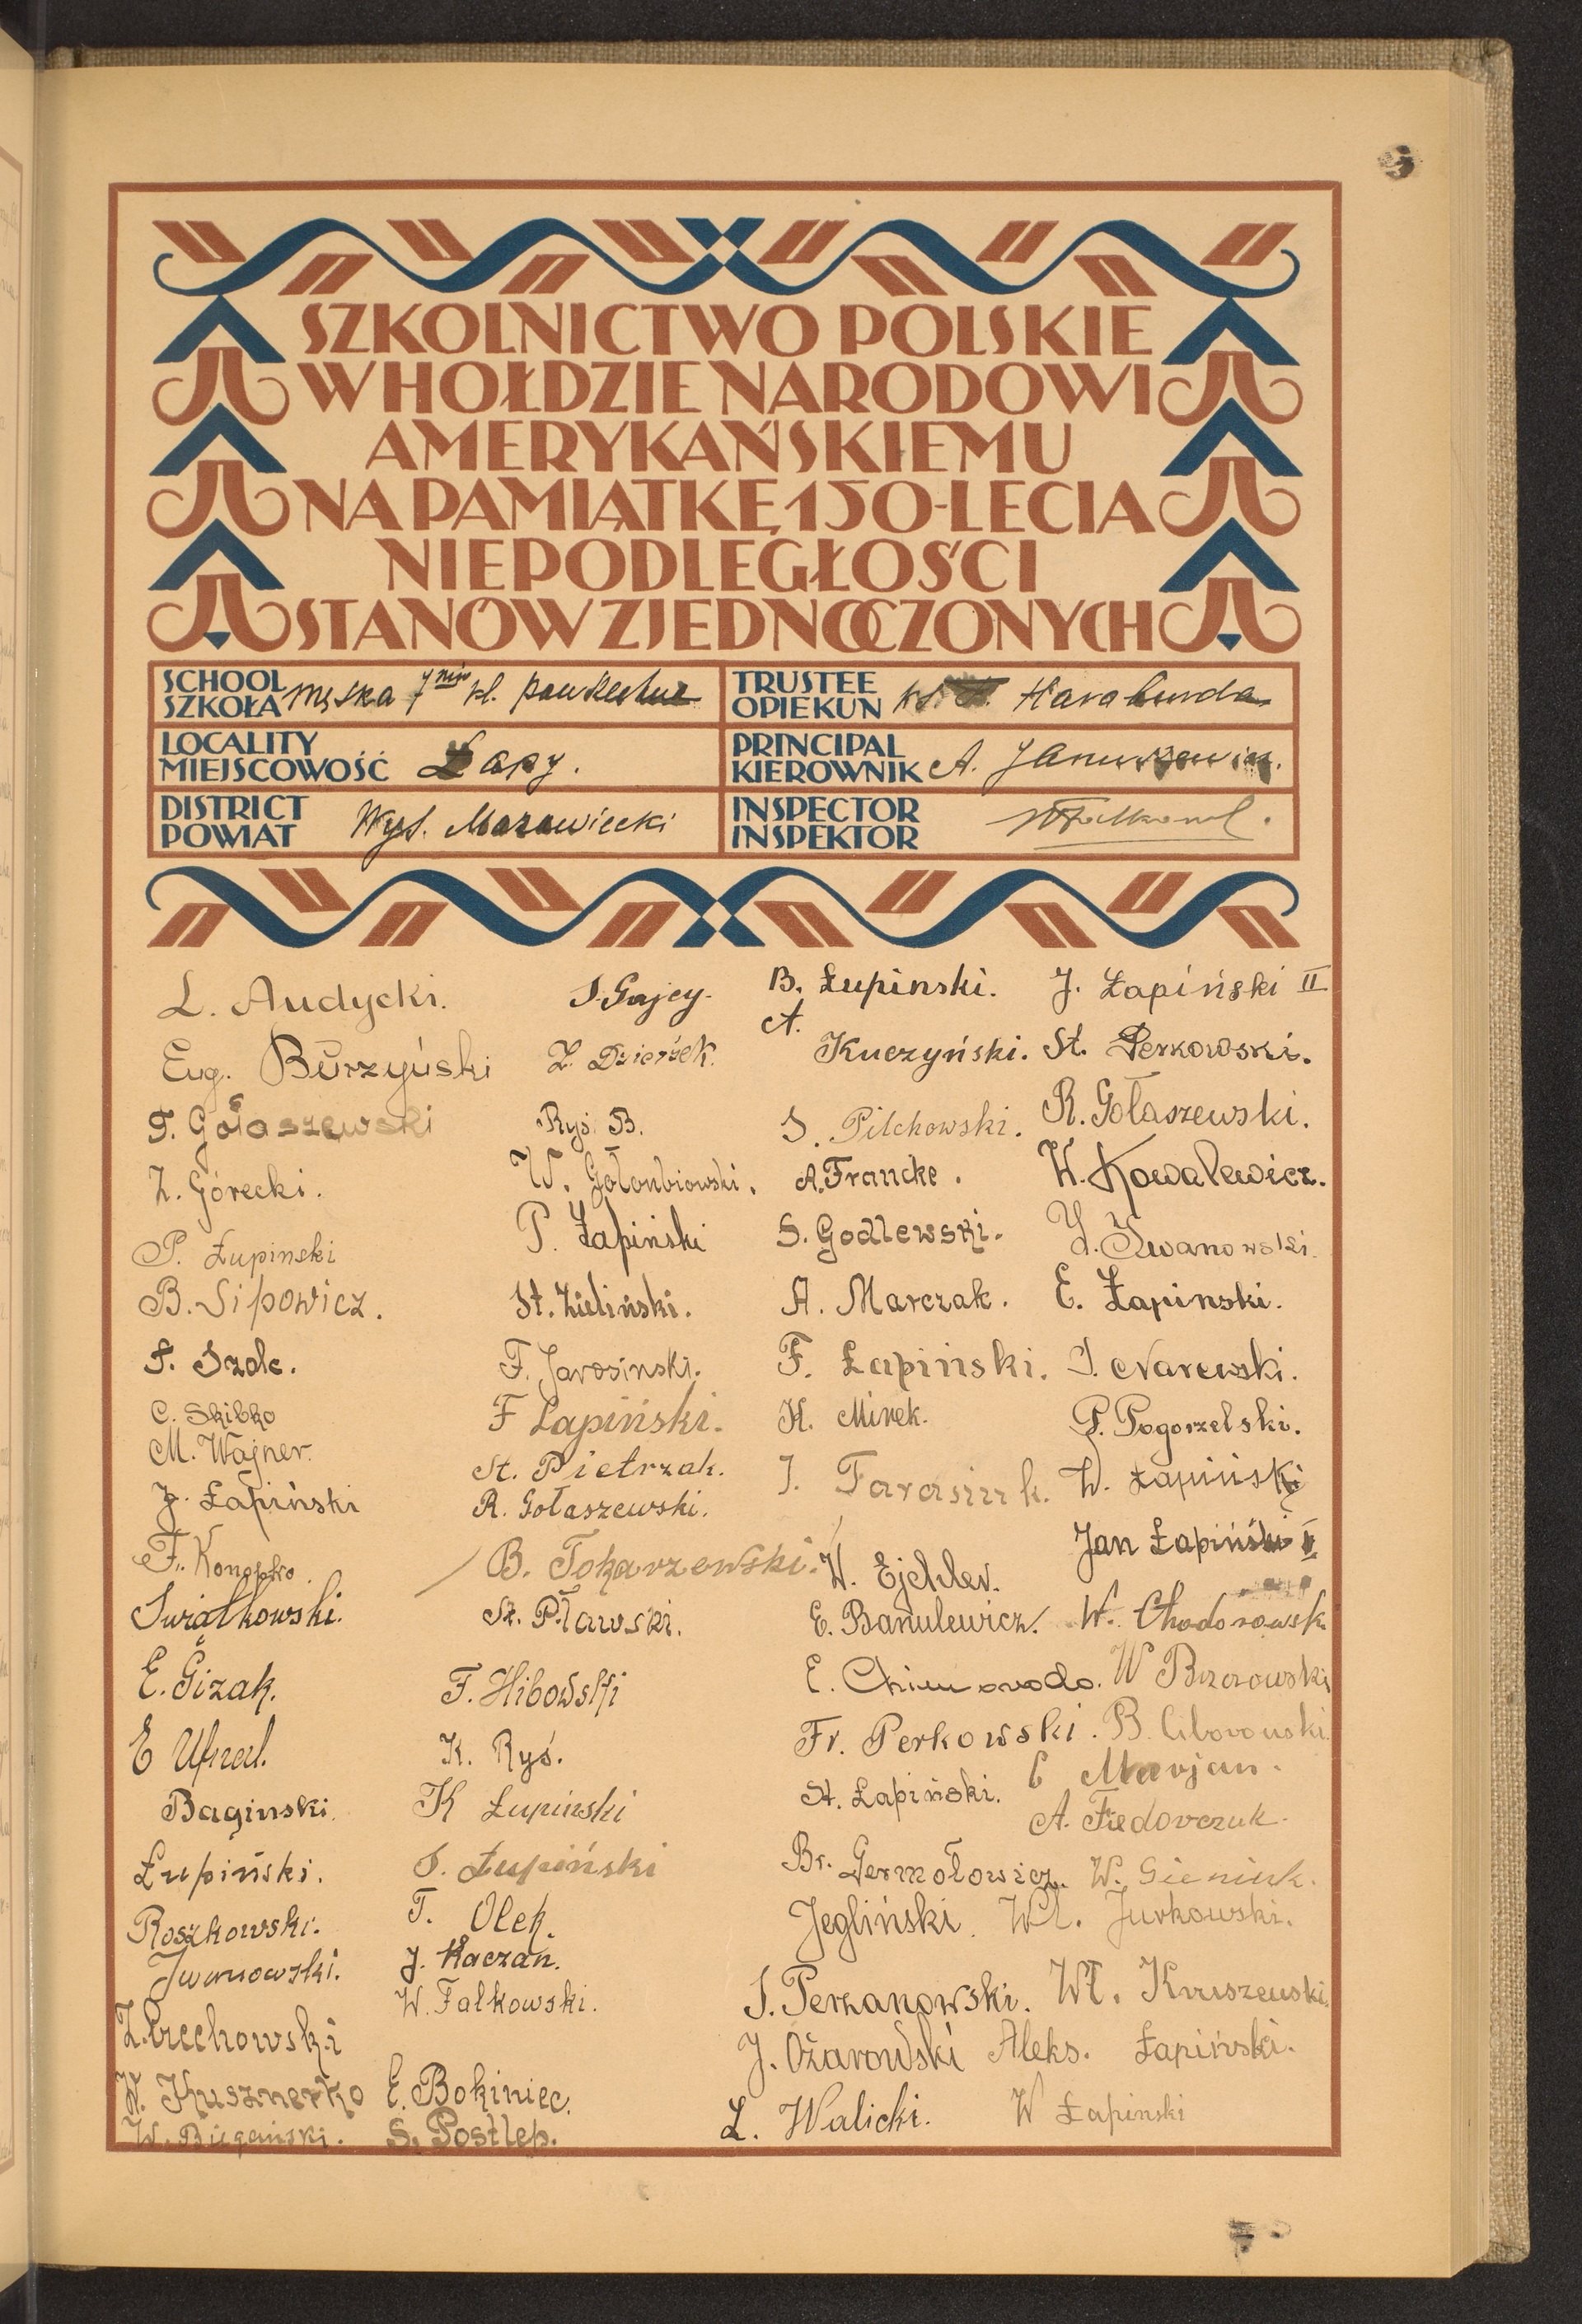 SZKOLNICTWO POLSKIE
W HOŁDZIE NARODOWI
AMERYKAŃSKIEMU
NA PAMIĄTKĘ 150-LECIA
NIEPODLEGŁOŚCI
STANÓW ZJEDNOCZONYCH
SCHOOL
SZKOŁA męska 7mio kl. powszechna
TRUSTEE
OPIEKUN Haraburda
LOCALITY
MIEJSCOWOŚĆ Łapy.
PRINCIPAL
KIEROWNIK A. Januszewicz.
DISTRICT
POWIAT Wys. Mazowiecki
INSPECTOR
INSPEKTOR
L. Audycki.
Eug. Burzyński
F. Gołaszewski
Z. Górecki.
P. Łupinski
B. Sipowicz.
S. Szolc.
C. Skibko
M. Wajner.
J. Łapiński
F. Konopko.
Świątkowski.
E. Gizak.
E
Bagiński.
Łupiński.
Roszkowski.
Iwanowski.
Z. Czechowski
W. Kusznerko
W. Biegański.
S. Gajcy.
Z. Dzierżek.
Ryś. B.
W. Gołonbiowski.
P. Łapiński
St. Zieliński.
F. Jarosinski.
F Łapiński.
St. Pietrzak.
R. Gołaszewski.
B. Tokarzewski.
St. Pławski.
F. Hibowski
K. Ryś.
K Łupinski
S. Łupiński
T. Olek.
J. Kaczan.
W. Falkowski.
E. Bokiniec.
S. Postlep.
B. Łupinski.
A. Kuczyński.
S. Pilchowski.
A. Francke.
S. Godlewski.
A. Marczak.
F. Łapiński.
K. Mirek.
J. Tarasiuk.
W. Ejchler.
E. Banulewicz.
E.
Fr. Perkowski.
St. Łapiński.
Br. Jermołowicz.
Jegliński.
S. Perzanowski.
J. Ożarowski
L. Walicki.
J. Łapiński II
St. Perkowski.
R. Gołaszewski.
W. Kowalewicz.
Z. Iwanowski.
E. Łapinski.
S. Narewski.
P. Pogorzelski.
W. Łapiński
Jan Łapiński I
W. Chodorowsk
W Brzozowski
B. Ciborowski.
C Marjan.
A. Fiedorczuk.
W. Gieniuk.
Wł. Jurkowski.
Wł. Kruszewski.
Aleks. Łapiński.
W Łapinski